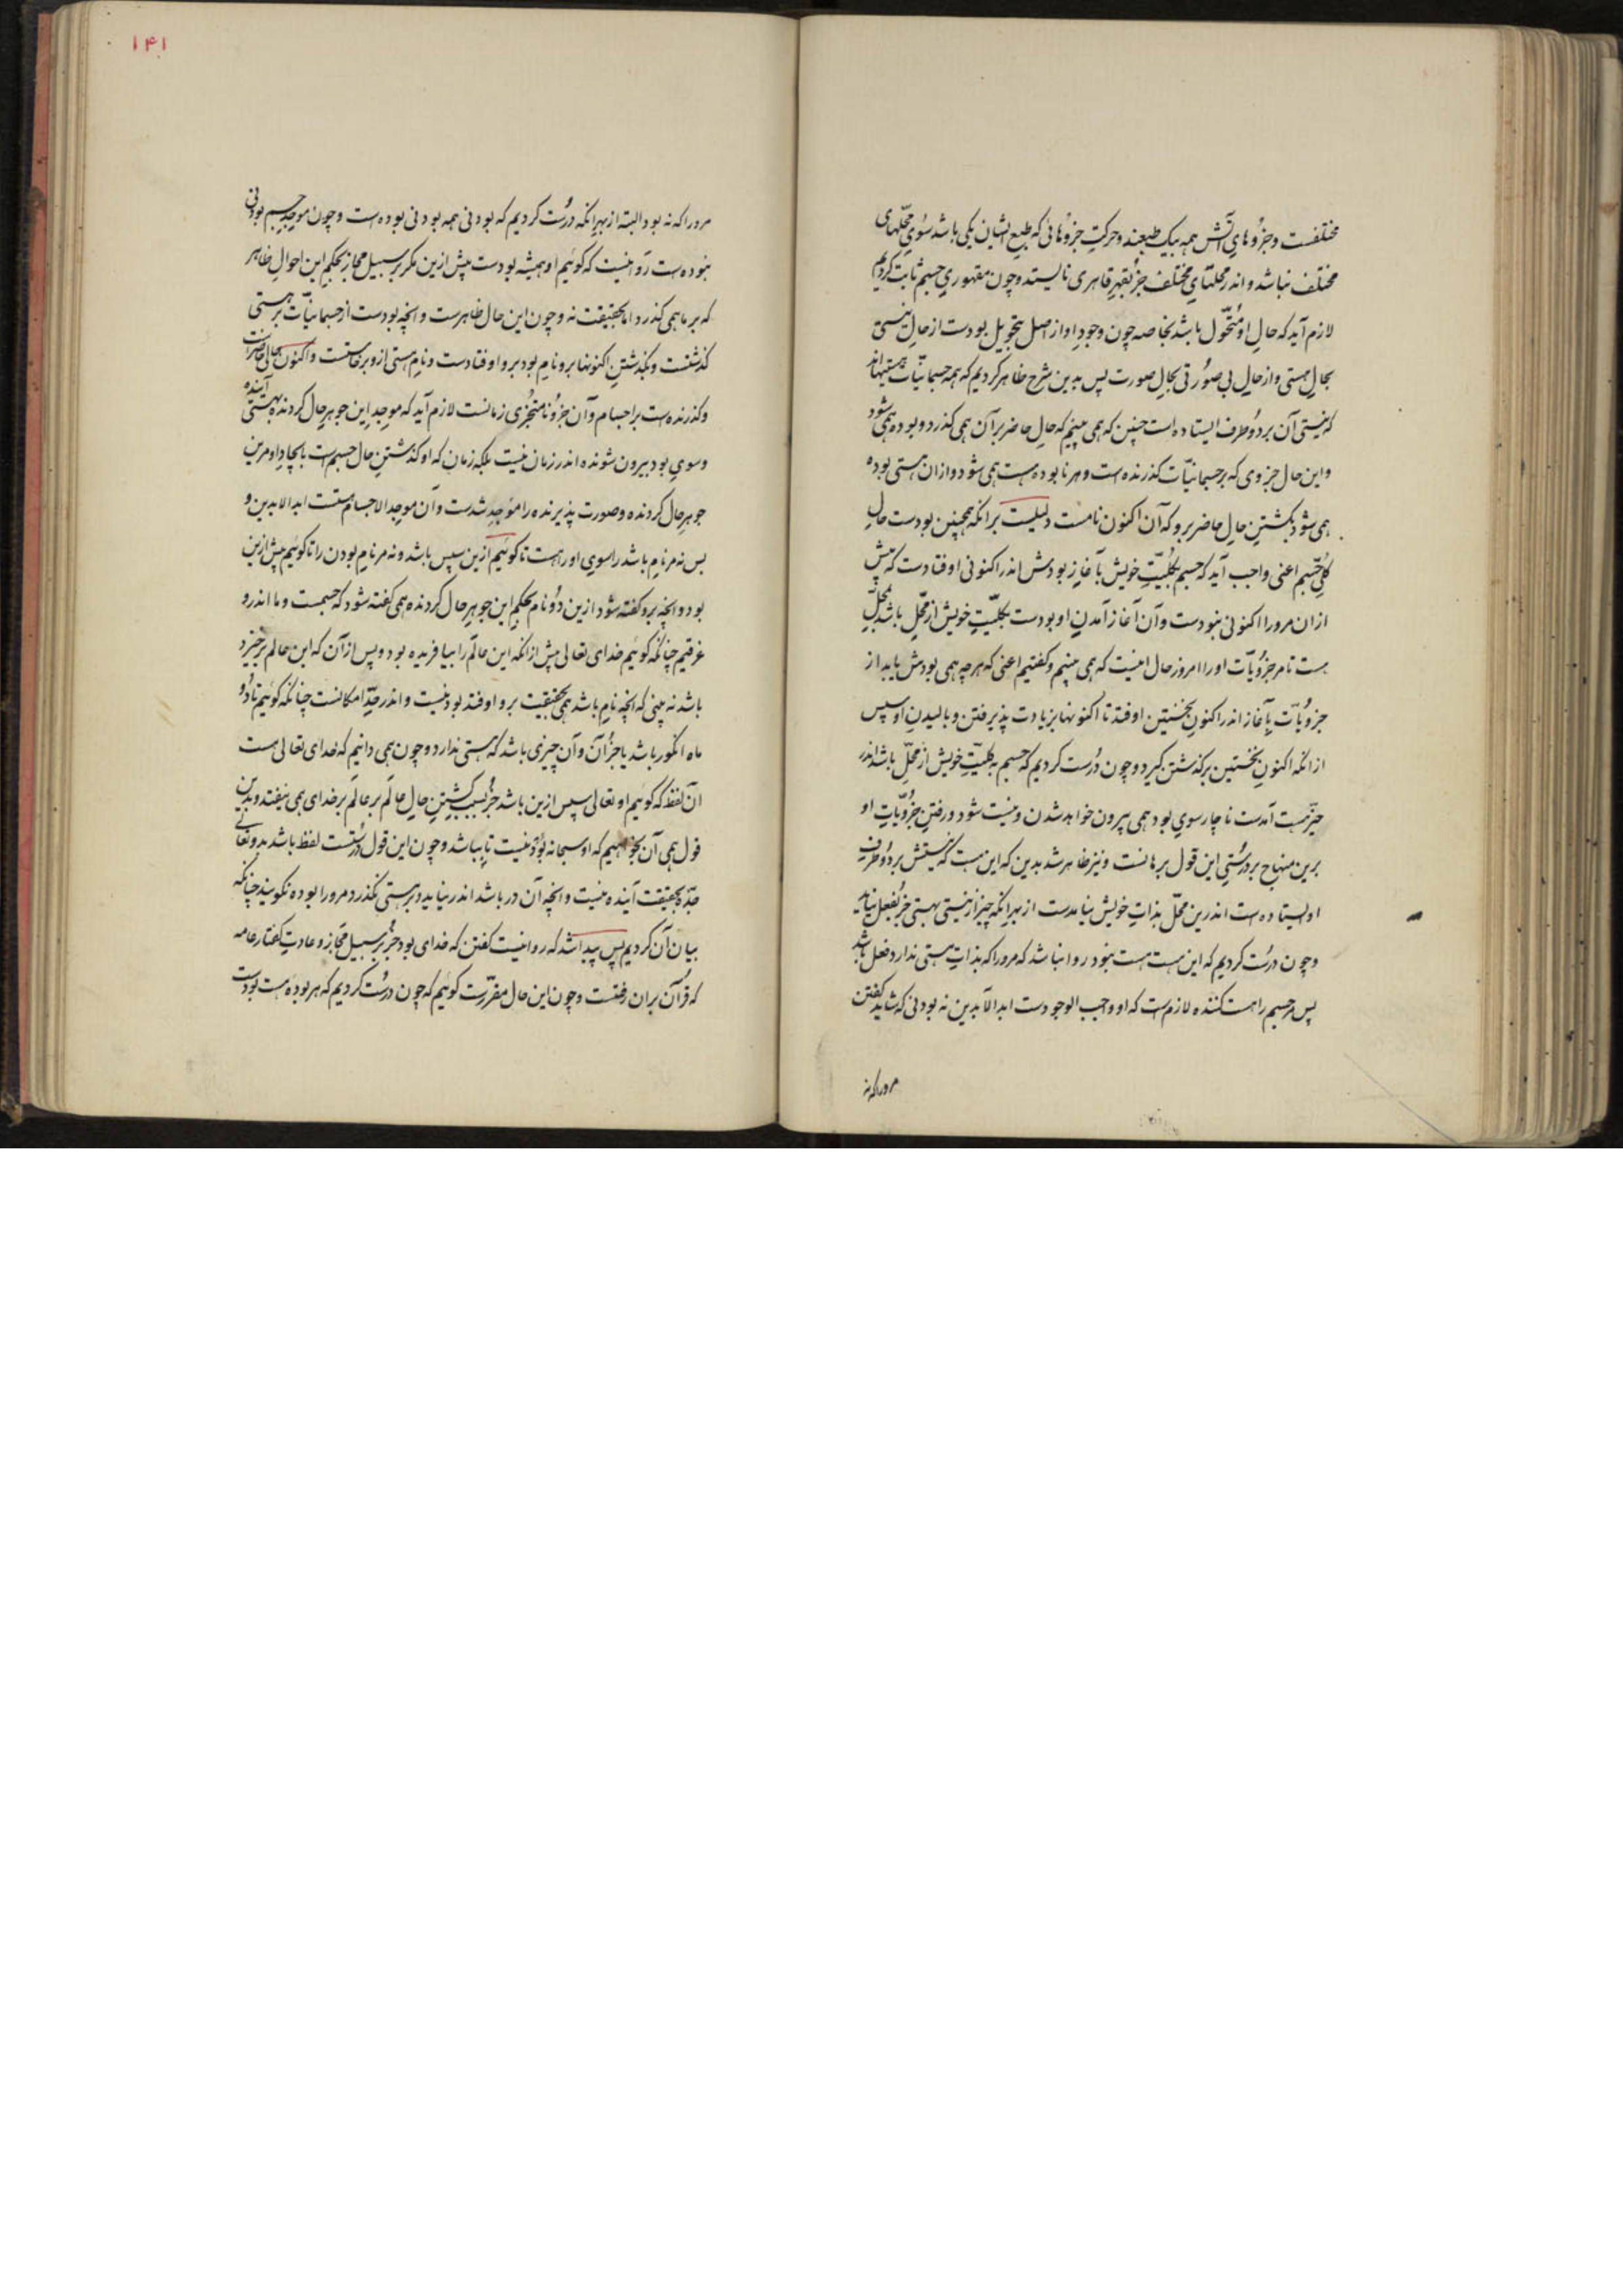 مختلفست وجزوهای آتش همه بیک طبعند و حرکت جزوهائی که طبع ایشان یکی باشد سوی محلهای
مختلف نباشد و اندر محلهای مختلف جز بقهر قاهری نایستد و چون مقهوری جسم ثابت کردیم
لازم آید که حال او متحول باشد بخاصه چون وجود او از اصل بتحویل بودست از حال نیستی
بحال هستی و از حال بی صورتی بحال صورت پس بدین شرح ظاهر کردیم که همه جسمانیات هستیهااند
که نیستی آن بر دو طرف ایستاده است چنین که همی بینیم که حال حاضر بر آن همی گذرد و بوده همی شود
و این حال جزوی که بر جسمانیات گذرنده است و هر نابوده هست همی شود و ازان هستی بوده
همی شود بگشتن حال حاضر برو که آن اکنون نامست دلیلیست برانکه همچنین بودست حال
کلی جسم اعنی واجب آید که جسم بکلیت خویش بآغاز بودش اندر اکنونی اوفتادست که پیش
ازان مرورا اکنونی نبودست و آن آغاز آمدن او بودست بکلیت خویش از محل باشد بمحل
هست تا مر جزویات اورا امروز حال اینست که همی بینیم و گفتیم اعنی که هرچه همی بودش یابد از
جزویات بآغاز اندر اکنون نخستین اوفتد تا اکنونها بزیادت پذیرفتن و بالیدن او سپس
ازانکه اکنون نخستین برگذشتن گیرد و چون درست کردیم که جسم بکلیت خویش از محل باشد اندر
حیز هست آمدست ناچار سوی بود همی بیرون خواهد شدن و نیست شود و رفتن جزویات او
برین منهاج بر درستی این قول برهانست و نیز ظاهر شد بدین که این هست که نیستش بر دو طرف
او ایستاده است اندرین محل بذات خویش نیامدست از بهر انکه چیز از نیستی بهستی جز بفعل نیاید
و چون درست کردیم که این هست هست نبود روا نباشد که مرورا که بذات هستی ندارد فعل باشد
پس مر جسم را هست کننده لازم است که او واجب الوجودست ابد الآبدین نه بودنی که شاید گفتن
مرورا که نه
۱۴۱
مرورا که نه بود البته از بهر انکه درست کردیم که بودنی همه بودنی بوده است و چون موجد جسم بودنی
نبوده است روا نیست که گوئیم او همیشه بودست پیش ازین مگر بر سبیل مجاز بحکم این احوال ظاهر
که بر ما همی گذرد اما بحقیقت نه و چون این حال ظاهرست و انچه بودست از جسمانیات بر هستی
گذشتست و بگذشتن اکنونها برو نام بود برو اوفتادست و نام هستی ازو برخاستست و اکنون حالی حاضرست
و گذرنده است بر اجسام و آن جزو نامتجزی زمانست لازم آید که موجد این جوهر حال گردنده بهستی آینده
و سوی بود بیرون شونده اندر زمان نیست بلکه زمان که او گذشتن حال جسم است بایجاد او مرین
جوهر حال گردنده و صورت پذیرنده را موجد شدست و آن موجد الاجسام هستست ابد الآبدین و
بس نه مر نام باشد را سوی او راهست تا گوئیم ازین سپس باشد و نه مر نام بودن را تا گوئیم پیش ازین
بود و انچه برو گفته شود ازین دو نام بحکم این جوهر حال گردنده همی گفته شود که جسمست و ما اندرو
غرقیم چنانکه گوئیم خدای تعالی پیش ازانکه این عالم را بیافریده بود و پس ازان که این عالم برخیزد
باشد نه بینی که انچه نام باشد همی بحقیقت برو اوفتد بود نیست و اندر حد امکانست چنانکه گوئیم تا دو
ماه انگور باشد یا جز آن و آن چیزی باشد که هستی ندارد و چون همی دانیم که خدای تعالی هست
آن لفظ که گوئیم او تعالی سپس ازین باشد جز بسبب گشتن حال عالم بر عالم بر خدای همی نیفتد و بدین
قول همی آن بخواهیم که او سبحانه بود نیست تا بباشد و چون این قول درستست لفظ باشد بدو تعالی
جده بحقیقت آینده نیست و انچه آن در باشد اندر نیاید و بر هستی نگذرد مرورا بوده نگویند چنانکه
بیان آن کردیم پس پیدا شد که روا نیست گفتن که خدای بود جز بر سبیل مجاز و عادت گفتار عامه
که قرآن بران رفتست و چون این حال مقررست گوئیم که چون درست کردیم که هر بوده هست بودست